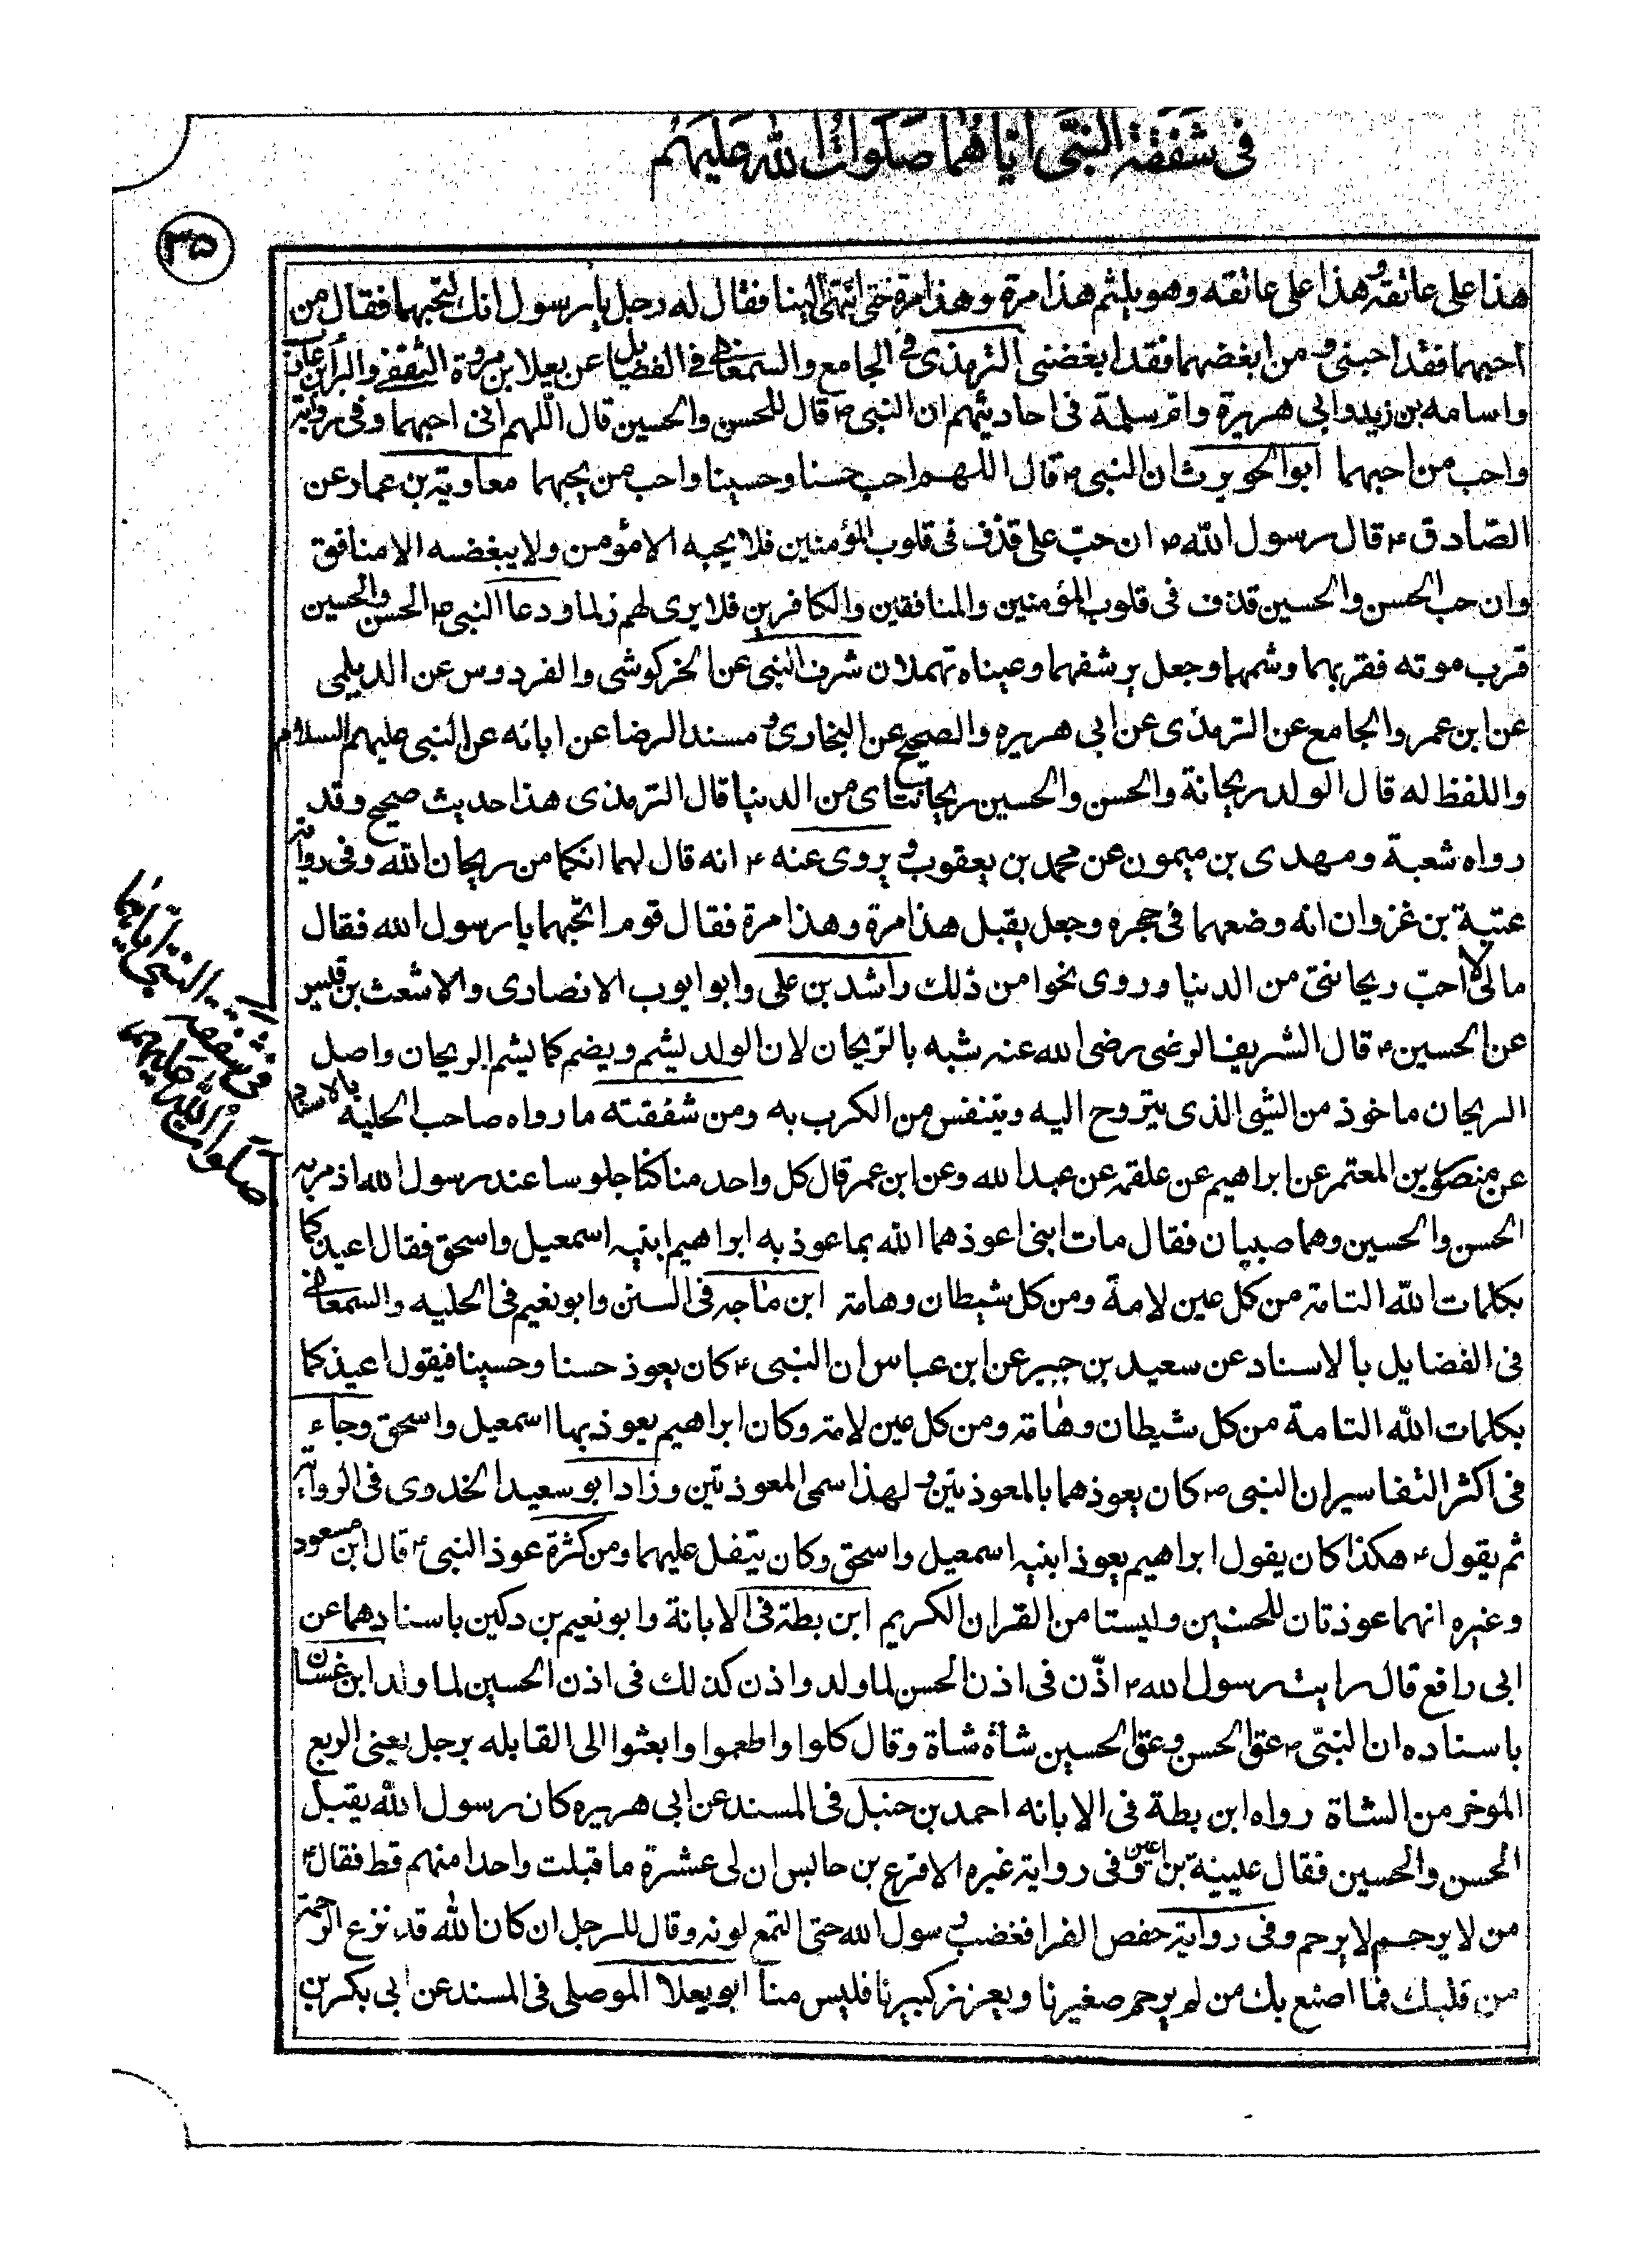 فى شفقة النبى اياهما صلوات الله عليهم
٣٥
هذا على عاتقه وهذا على عاتقه وهو يلثم هذا مرة وهذا مرة حتى انتهى الينا فقال له رجل يا رسول انك لتحبهما فقال من
احبهما فقد احبنى ومن ابغضهما فقد ابغضنى الترمذى فى الجامع والسمعانى فى الفضايل عن يعلا بن مروة الثقفى والبرا بن عازب
واسامه بن زيد وابى هريرة وام سلمة فى احاديثهم ان النبى ص قال للحسن والحسين قال اللهم انى احبهما وفى رواية
واحب من احبهما ابو الحويرث ان النبى ص قال اللهم احب حسنا وحسينا واحب من يحبهما معاوية بن عمار عن
الصّادق ع قال رسول الله ص ان حبّ على قذف فى قلوب المؤمنين فلا يحبه الا مؤمن ولا يبغضه الا منافق
وان حب الحسن والحسين قذف فى قلوب المؤمنين والمنافقين والكافرين فلا يرى لهم ذاما ودعا النبى ص الحسن والحسين
قرب موته فقربهما وشمهما وجعل يرشفهما وعيناه تهملان شرف النبى عن الخركوشى والفردوس عن الديلمى
عن ابن عمر والجامع عن الترمذى عن ابى هريره والصحيح عن البخارى ومسند الرضا عن ابائه عن النبى عليهم السلام
واللفظ له قال الولد ريحانة والحسن والحسين ريحانتاى من الدنيا قال الترمذى هذا حديث صحيح وقد
رواه شعبة ومهدى بن ميمون عن محمد بن يعقوب ويروى عنه ع انه قال لهما انكما من ريحان الله وفى رواية
عتبة بن غزوان انه وضعهما فى حجره وجعل يقبل هذا مرة وهذا مرة فقال قوم اتحبهما يا رسول الله فقال
مالى لا احبّ ريحانتى من الدنيا وروى نحوا من ذلك راشد بن على وابو ايوب الانصارى والاشعث بن قيس
عن الحسين ع قال الشريف الرضى رضى الله عنه شبه بالرّيحان لان الولد يشم ويضم كما يشم الريحان واصل
الريحان ماخوذ من الشى الذى يتروح اليه ويتنفس من الكرب به ومن شفقته ما رواه صاحب الحليه بالاسناد
عن منصور بن المعتمر عن ابراهيم عن علقمه عن عبد الله وعن ابن عمر قال كل واحد منا كنا جلوسا عند رسول الله اذ مر به
الحسن والحسين وهما صبيان فقال هات ابنى اعوذهما الله بما عوذ به ابراهيم ابنيه اسمعيل واسحق فقال اعيذكما
بكلمات الله التامة من كل عين لامة ومن كل شيطان وهامة ابن ماجه فى السنن وابو نعيم فى الحليه والسمعانى
فى الفضايل بالاسناد عن سعيد بن جبير عن ابن عباس ان النبى ع كان يعوذ حسنا وحسينا فيقول اعيذكما
بكلمات الله التامة من كل شيطان وهامة ومن كل عين لامة وكان ابراهيم يعوذ بها اسمعيل واسحق وجاء
فى اكثر التفاسير ان النبى ص كان يعوذهما بالمعوذتين ولهذا سمى المعوذتين وزاد ابو سعيد الخدرى فى الرواية
ثم يقول ع هكذا كان يقول ابراهيم يعوذ ابنيه اسمعيل واسحق وكان يتفل عليهما ومن كثرة عوذ النبى ع قال ابن مسعود
وغيره انهما عوذتان للحسنين وليستا من القران الكريم ابن بطة فى الابانة وابو نعيم بن دكين باسنادهما عن
ابى رافع قال رايت رسول الله ص اذّن فى اذن الحسن لما ولد واذن كذلك فى اذن الحسين لما ولد ابن غسان
باسناده ان النبّى ع عق الحسن وعق الحسين شاة شاة وقال كلوا واطعموا وابعثوا الى القابله برجل يعنى الربع
الموخر من الشاة رواه ابن بطة فى الابانه احمد بن حنبل فى المسند عن ابى هريره كان رسول الله يقبل
الحسن والحسين فقال عيينة وفى رواية غيره الاقرع بن حابس ان لى عشرة ما قبلت واحدا منهم قط فقال ع
من لا يرحم لا يرحم وفى رواية حفص الفرا فغضب رسول الله حتى التمع لونه وقال للرجل ان كان الله قد نزع الرحمة
من قلبك فما اصنع بك من لم يرحم صغيرنا ويعزز كبيرنا فليس منا ابو يعلا الموصلى فى المسند عن ابى بكر بن
فى شفقة النبى اياهما
صلوات الله عليهم